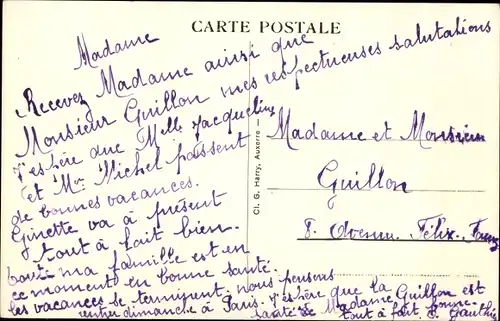 CARTE POSTALE
Madame
Recevez Madame ainsi que
Monsieur Guillon mes respectueuses salutations
J'espère que Mlle Jacqueline
et Mr Michel passent
de bonnes vacances.
Ginette va à présent
tout à fait bien.
toute ma famille est en
ce moment en bonne santé.
les vacances se terminent. nous pensons
rentrer dimanche à Paris. J'espère que la
santé de Madame Guillon est
tout à fait bonne.
Cl. G. Harry, Auxerre
Madame et Monsieur
Guillon
8. Avenue Félix-Faure